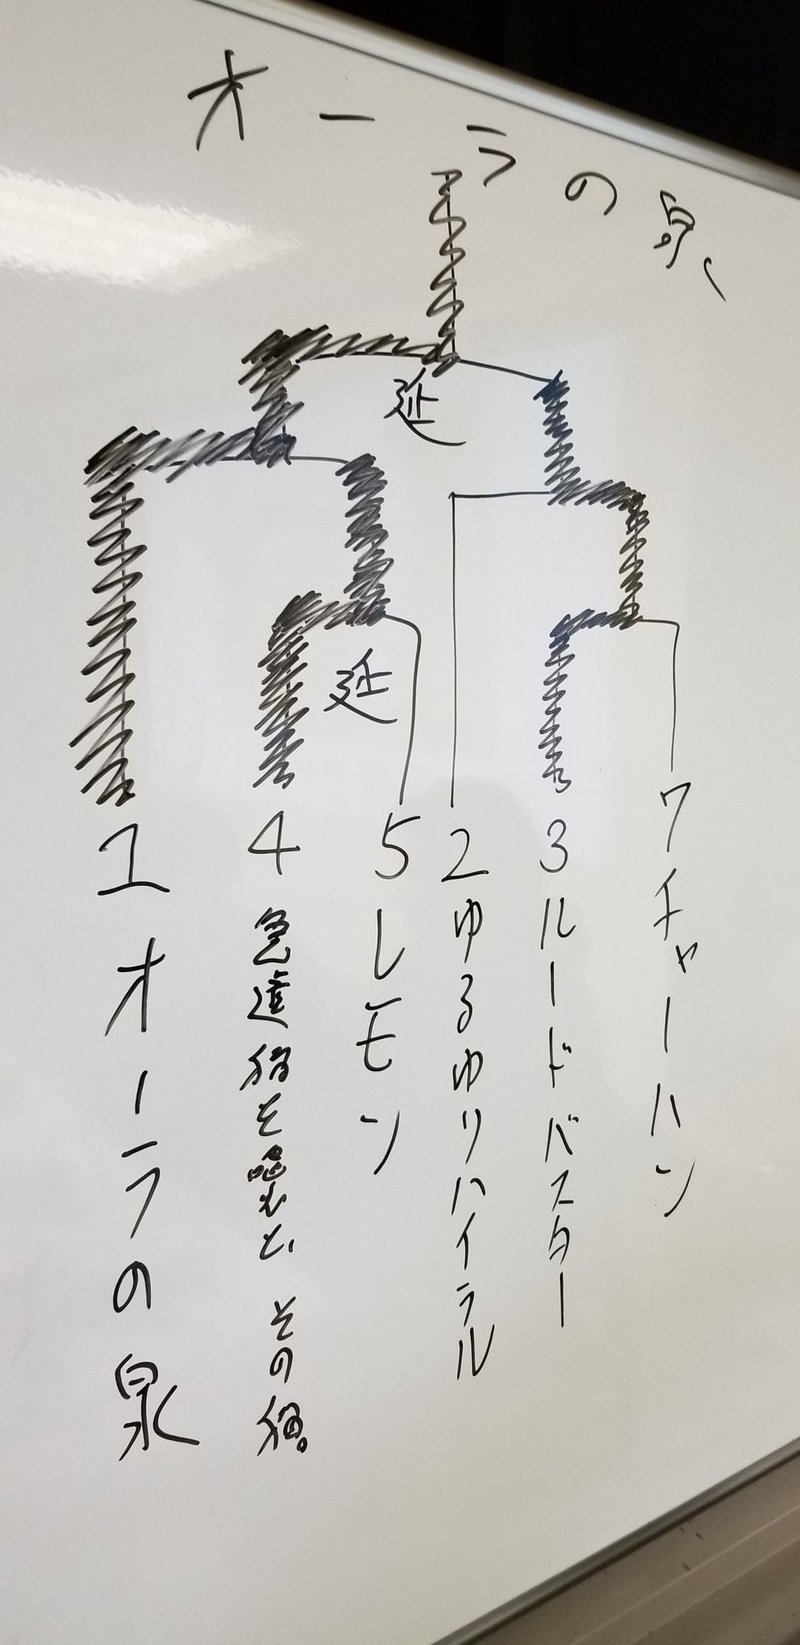 オーラの泉
延
延
1 オーラの泉
4 急造 を と、その
5 レモン
2 ゆるゆりハイラル
3 ルードバスター
7 チャーハン